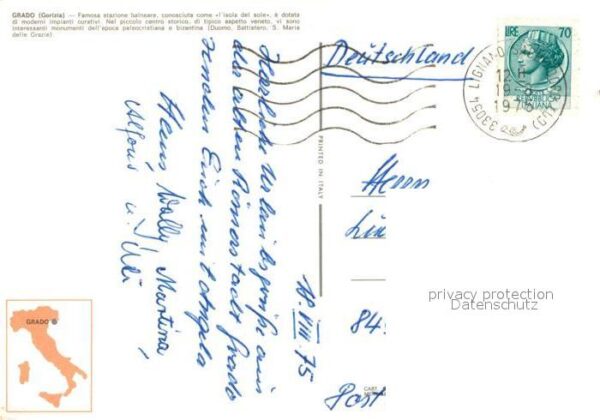 GRADO (Gorizia) — Famosa stazione balneare, conosciuta come «l'isola del sole», è dotata
di moderni impianti curativi. Nel piccolo centro storico, di tipico aspetto veneto, vi sono
interessanti monumenti dell'epoca paleocristiana e bizantina (Duomo, Battistero, S. Maria
delle Grazie)
Deutschland
LIRE 70
33054 LIGNANO
12
19
1975
(UD)
ITALIANA
PRINTED IN ITALY
18. VIII 75
Herzliche Urlaubsgrüße aus
der alten Römerstadt Grado
senden Euch mit Angela
Hans Wally Martina
Alfons u.
Herrn
84
Post
GRADO
privacy protection
Datenschutz